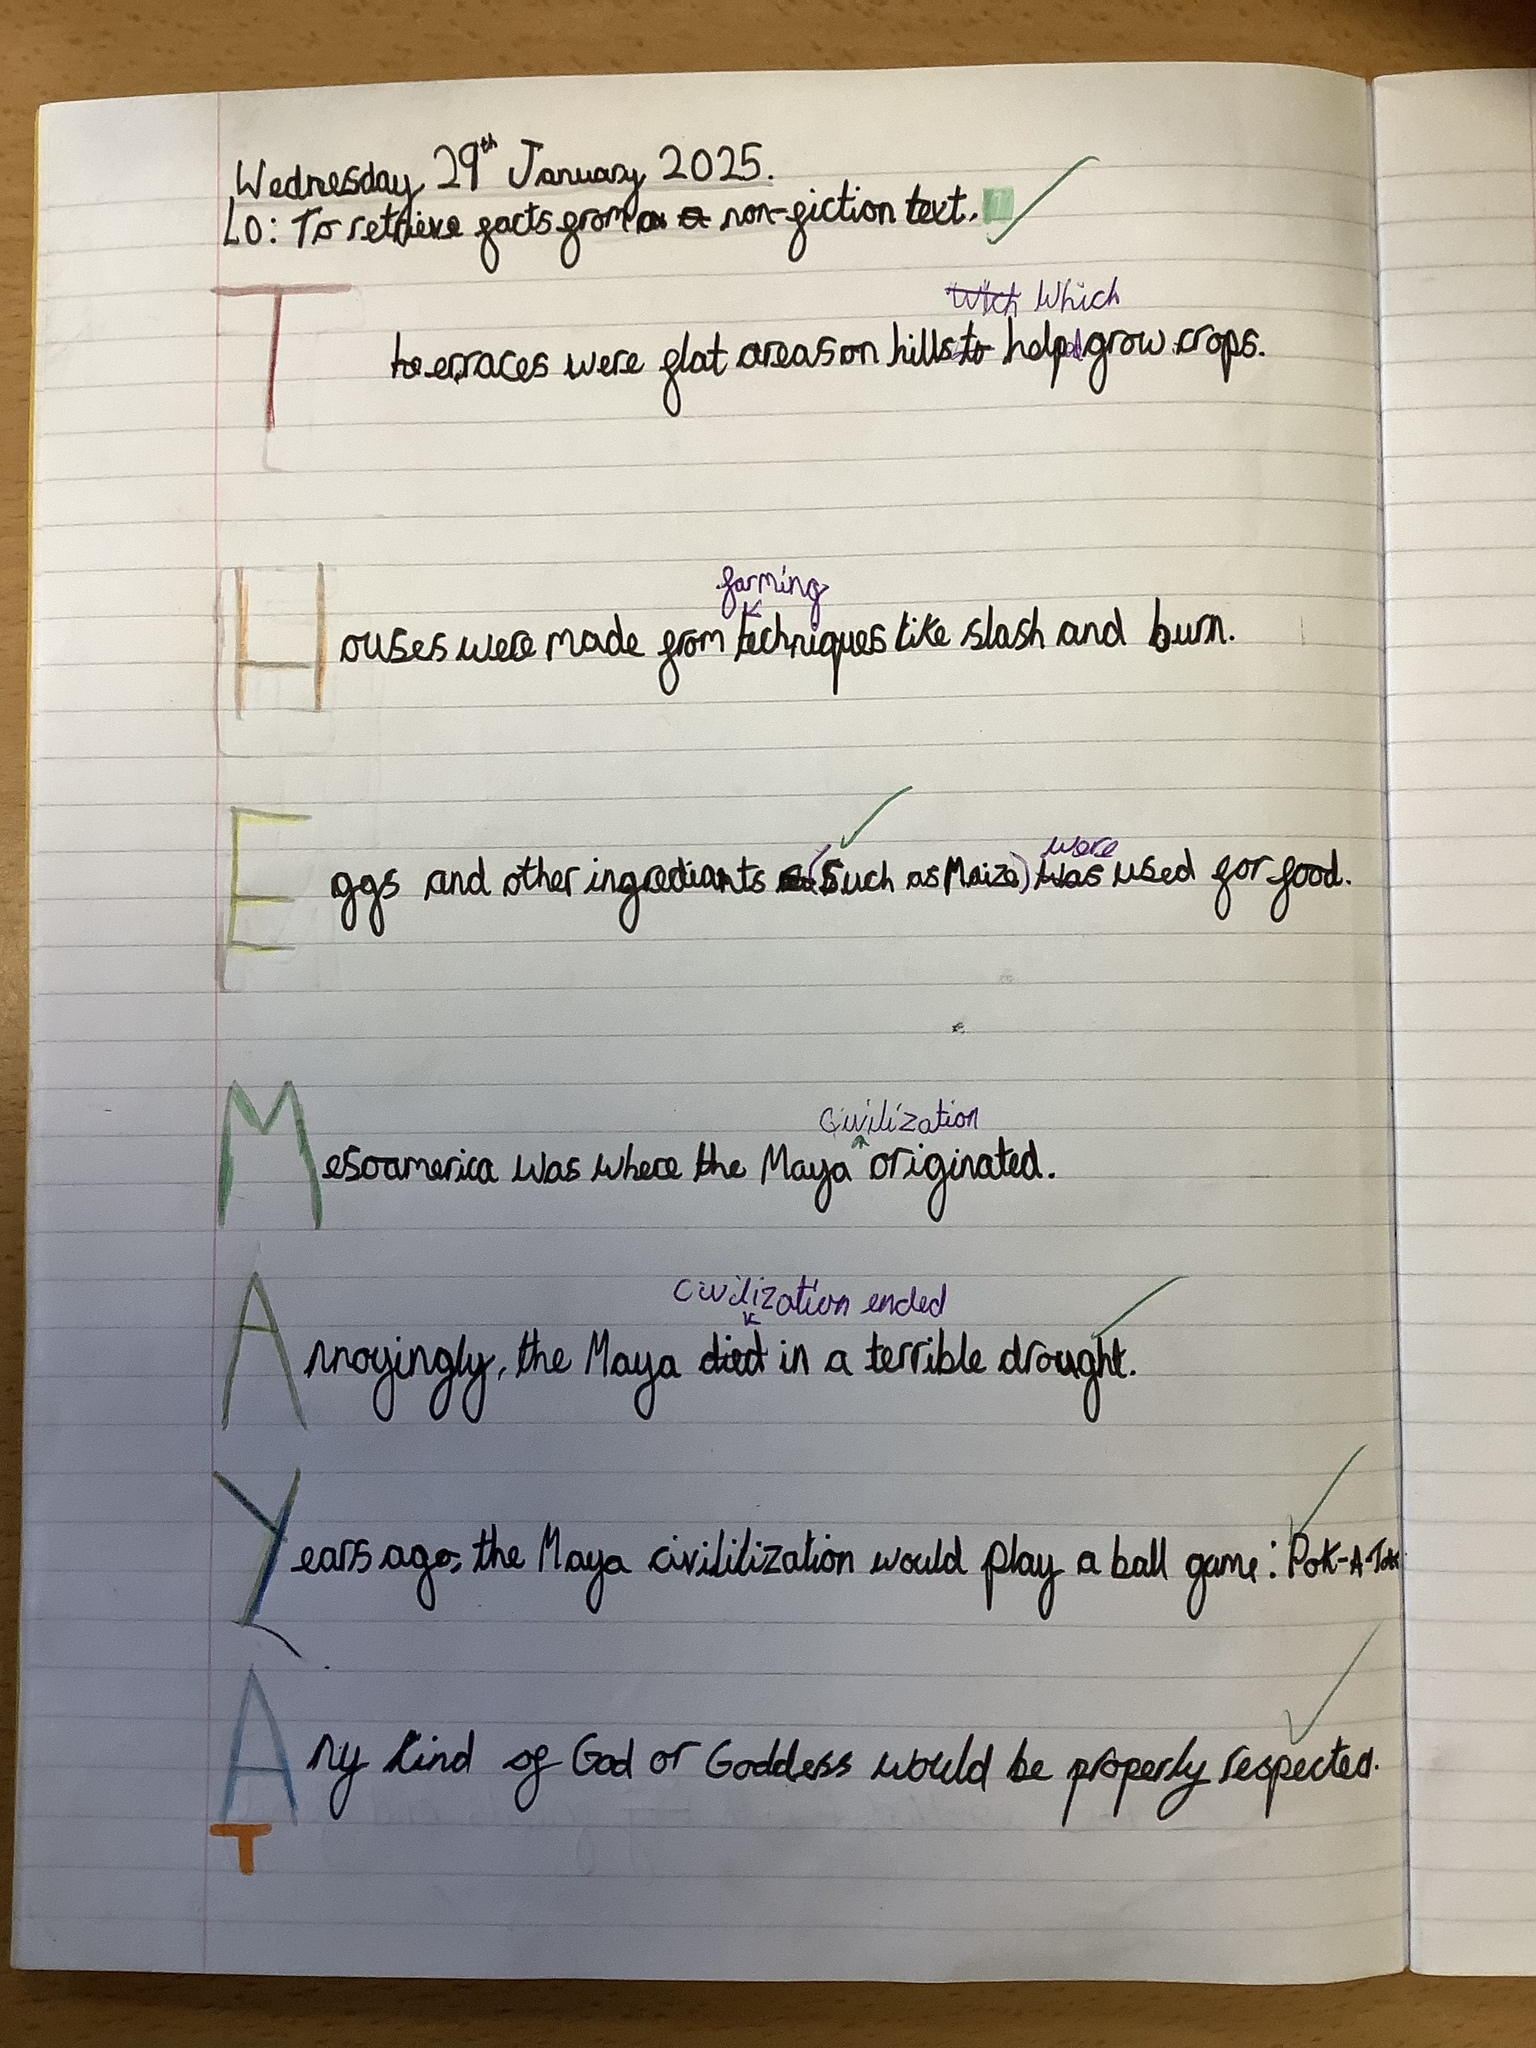 Wednesday 29th January 2025.
LO: To retrieve facts from a non-fiction text. T
Wich Which
T he erraces were flat areas on hills to helped grow crops.
farming
Houses were made from techniques like slash and burn.
were
Eggs and other ingrediants (Such as Maize) was used for food.
Civilization
Mesoamerica was where the Maya originated.
Civilization ended
Annoyingly, the Maya died in a terrible drought.
Years ago, the Maya civililization would play a ball game: Pok-A-Tok
Any kind of God or Goddess would be properly respected.
T